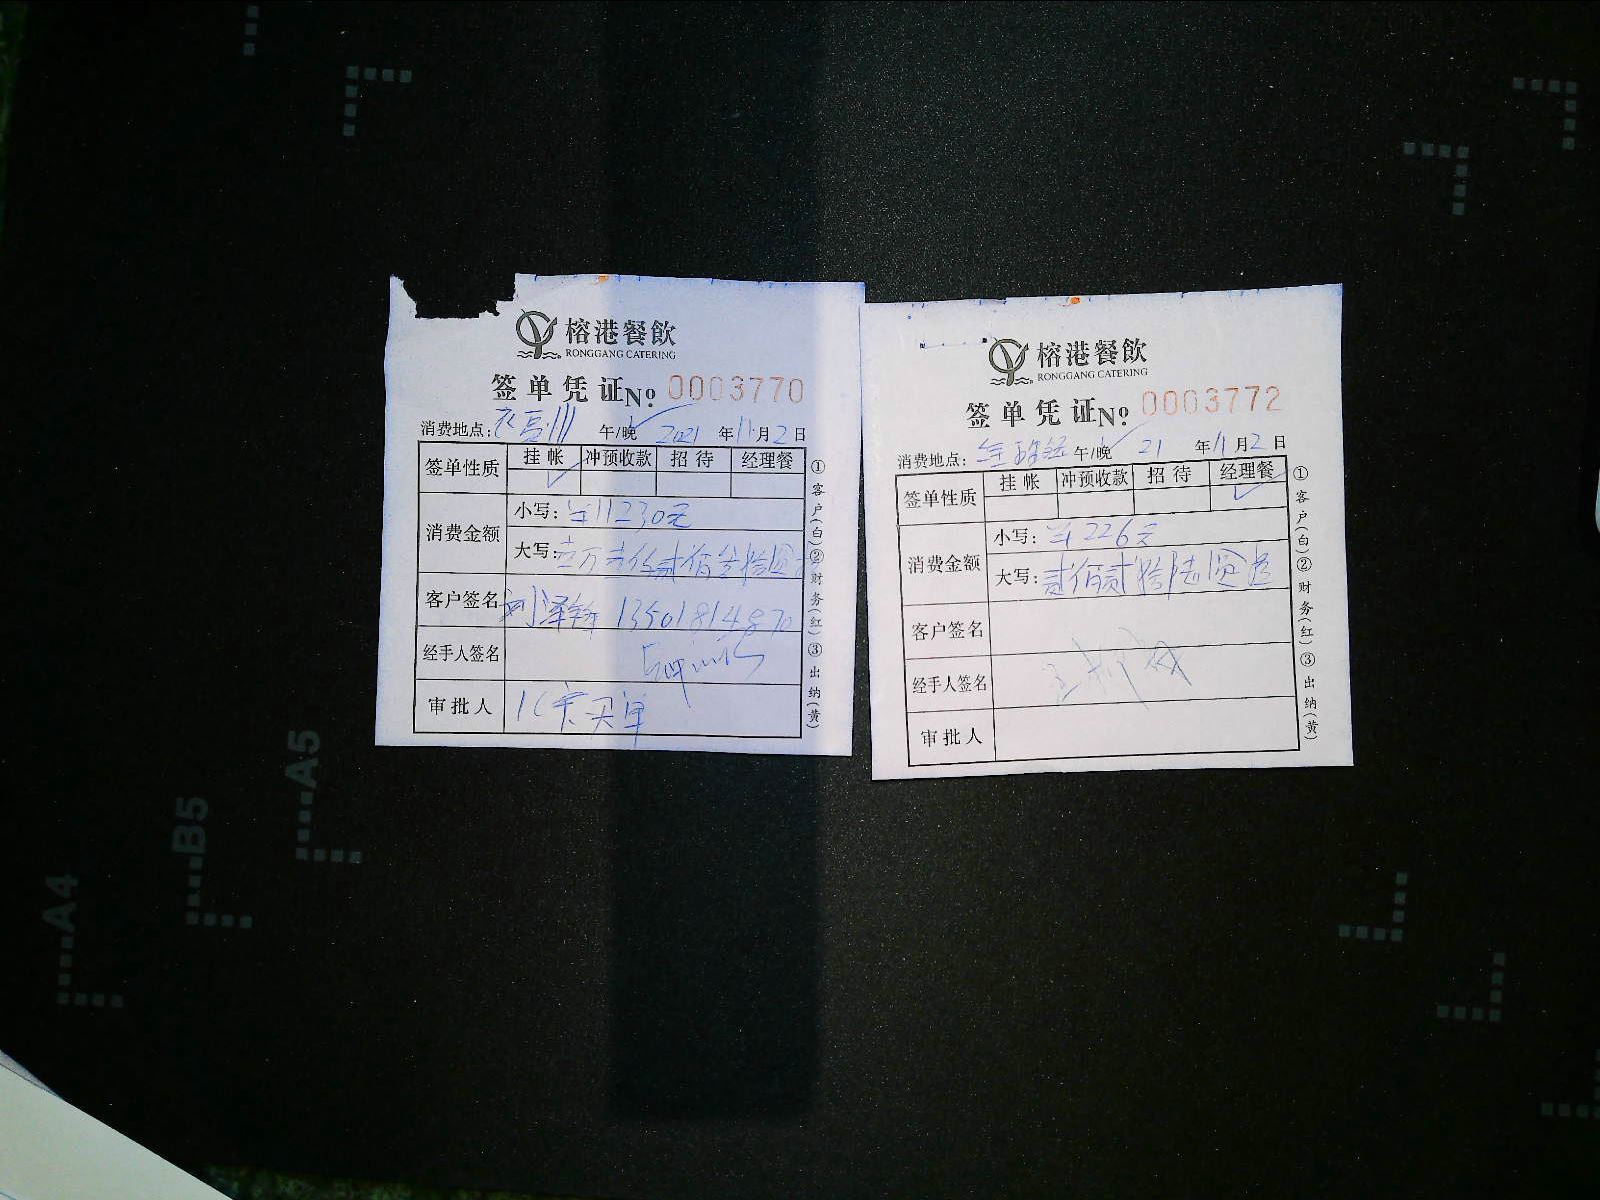 榕港餐飲
RONGGANG CATERING
签单凭证 No 0003770
消费地点: 午/晚 2021 年 11 月 2 日
签单性质 挂帐 冲预收款 招待 经理餐
消费金额
小写: ¥11230元
大写: 壹万壹仟贰佰叁拾圆
客户签名 13501814870
经手人签名
审批人 买单
①客户(白)②财务(红)③出纳(黄)
榕港餐飲
RONGGANG CATERING
签单凭证 No 0003772
消费地点: 午/晚 21 年 11 月 2 日
签单性质 挂帐 冲预收款 招待 经理餐
消费金额
小写: ¥226元
大写: 贰佰贰拾陆圆
客户签名
经手人签名
审批人
①客户(白)②财务(红)③出纳(黄)
A5
B5
A4